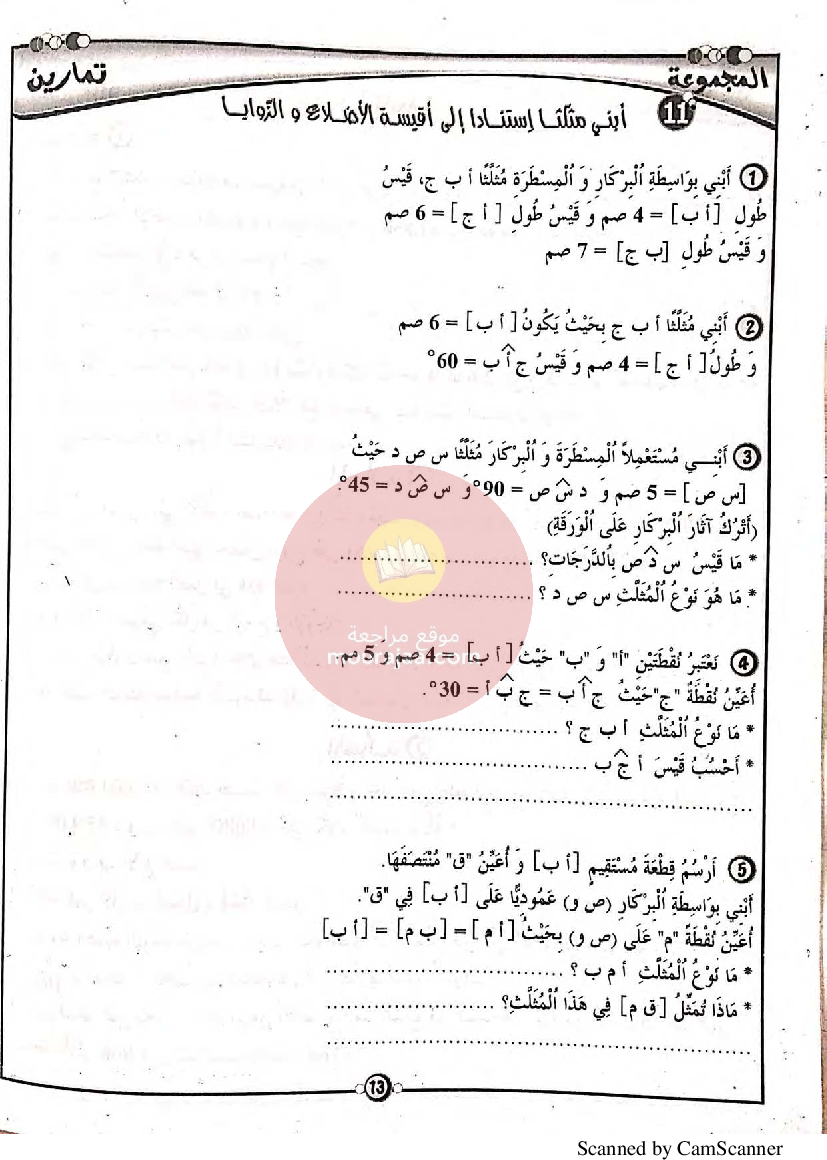 المجموعة
تمارين
11 أبني مثلثا إستنادا إلى أقيسة الأضلاع و الزوايا
1 أَبْنِي بِوَاسِطَةِ الْبِرْكَارِ وَ الْمِسْطَرَةِ مُثَلَّثًا أ ب ج، قَيْسُ
طُولِ [أ ب] = 4 صم وَ قَيْسُ طُولِ [أ ج] = 6 صم
وَ قَيْسُ طُولِ [ب ج] = 7 صم
2 أَبْنِي مُثَلَّثًا أ ب ج بِحَيْثُ يَكُونُ [أ ب] = 6 صم
وَ طُولُ [أ ج] = 4 صم وَ قَيْسُ جأ̂ب = 60°
3 أَبْنِـــي مُسْتَعْمِلاً الْمِسْطَرَةَ وَ الْبِرْكَارَ مُثَلَّثًا س ص د حَيْثُ
[س ص] = 5 صم وَ د س̂ ص = 90° وَ س ص̂ د = 45°.
(أَتْرُكُ آثَارَ الْبِرْكَارِ عَلَى الْوَرَقَةِ)
* مَا قَيْسُ س د̂ ص بِالدَّرَجَاتِ؟ ..............................
* مَا هُوَ نَوْعُ الْمُثَلَّثِ س ص د ؟ ..............................
موقع مراجعة
4 نَعْتَبِرُ نُقْطَتَيْنِ "أ" وَ "ب" حَيْثُ [أ ب] = 4 صم و 5 مم.
أُعَيِّنُ نُقْطَةُ "ج" حَيْثُ ج أ̂ ب = ج ب̂ أ = 30°.
* مَا نَوْعُ الْمُثَلَّثِ أ ب ج ؟ ..............................
* أَحْسُبُ قَيْسَ أ ج̂ ب ..............................
..............................
5 أَرْسُمُ قِطْعَةَ مُسْتَقِيمٍ [أ ب] وَ أُعَيِّنُ "ق" مُنْتَصَفَهَا.
أَبْنِي بِوَاسِطَةِ الْبِرْكَارِ (ص و) عَمُودِيًّا عَلَى [أ ب] فِي "ق".
أُعَيِّنُ نُقْطَةُ "م" عَلَى (ص و) بِحَيْثُ [أ م] = [ب م] = [أ ب]
* مَا نَوْعُ الْمُثَلَّثِ أ م ب ؟ ..............................
* مَاذَا تُمَثِّلُ [ق م] فِي هَذَا الْمُثَلَّثِ؟ ..............................
..............................
13
Scanned by CamScanner